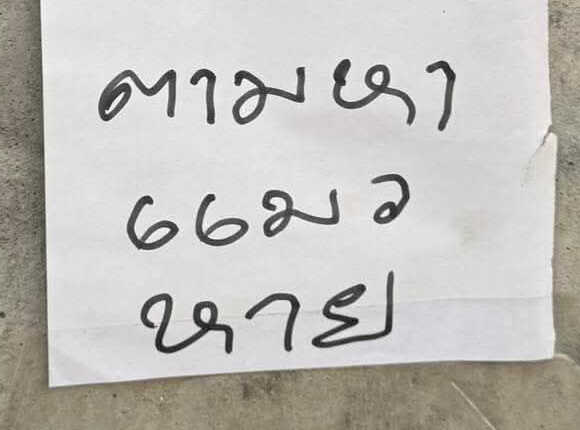 ตามหา
แมว
หาย